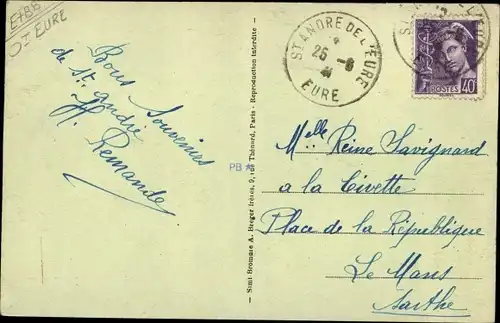 E788
ST EURE
Bons Souvenirs
de St. André
H. Remande
Semi-Bromure A. Breger frères, 9, rue Thénard, Paris - Reproduction interdite -
PB
ST ANDRE DE L'EURE
25 -8
EURE
POSTES 40
Melle Reine Savignard
a la Civette
Place de la République
Le Mans
Sarthe